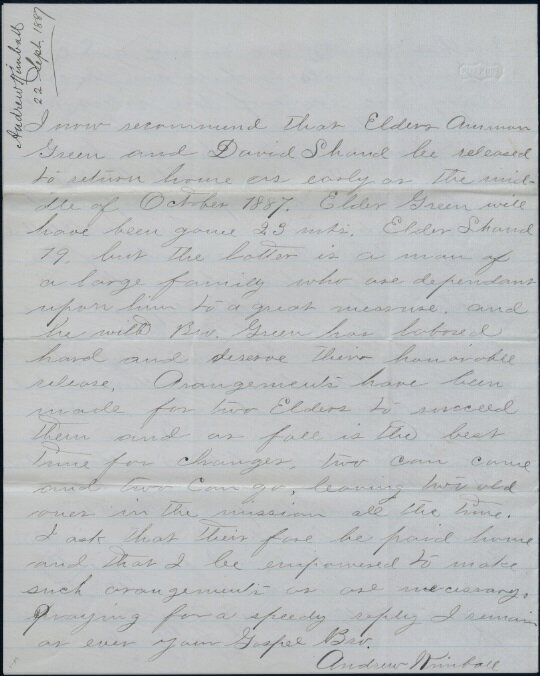 Andrew Kimball
22 Sept. 1887
I now recommend that Elders Ammon
Green and David Shand be released
to return home as early as the mid-
dle of October 1887. Elder Green will
have been gone 23 mts. Elder Shand
19, but the latter is a man of
a large family who are dependant
upon him to a great measure, and
he with Bro. Green has labored
hard and deserve their honorable
release. Arangements have been
made for two Elders to succeed
them and as fall is the best
time for changes, two can come
and two can go, leaving two old
ones in the mission all the time.
I ask that their fare be paid home
and that I be empowered to make
such arangements as are necessary.
Praying for a speedy reply I remain
as ever your Gospel Bro.
Andrew Kimball